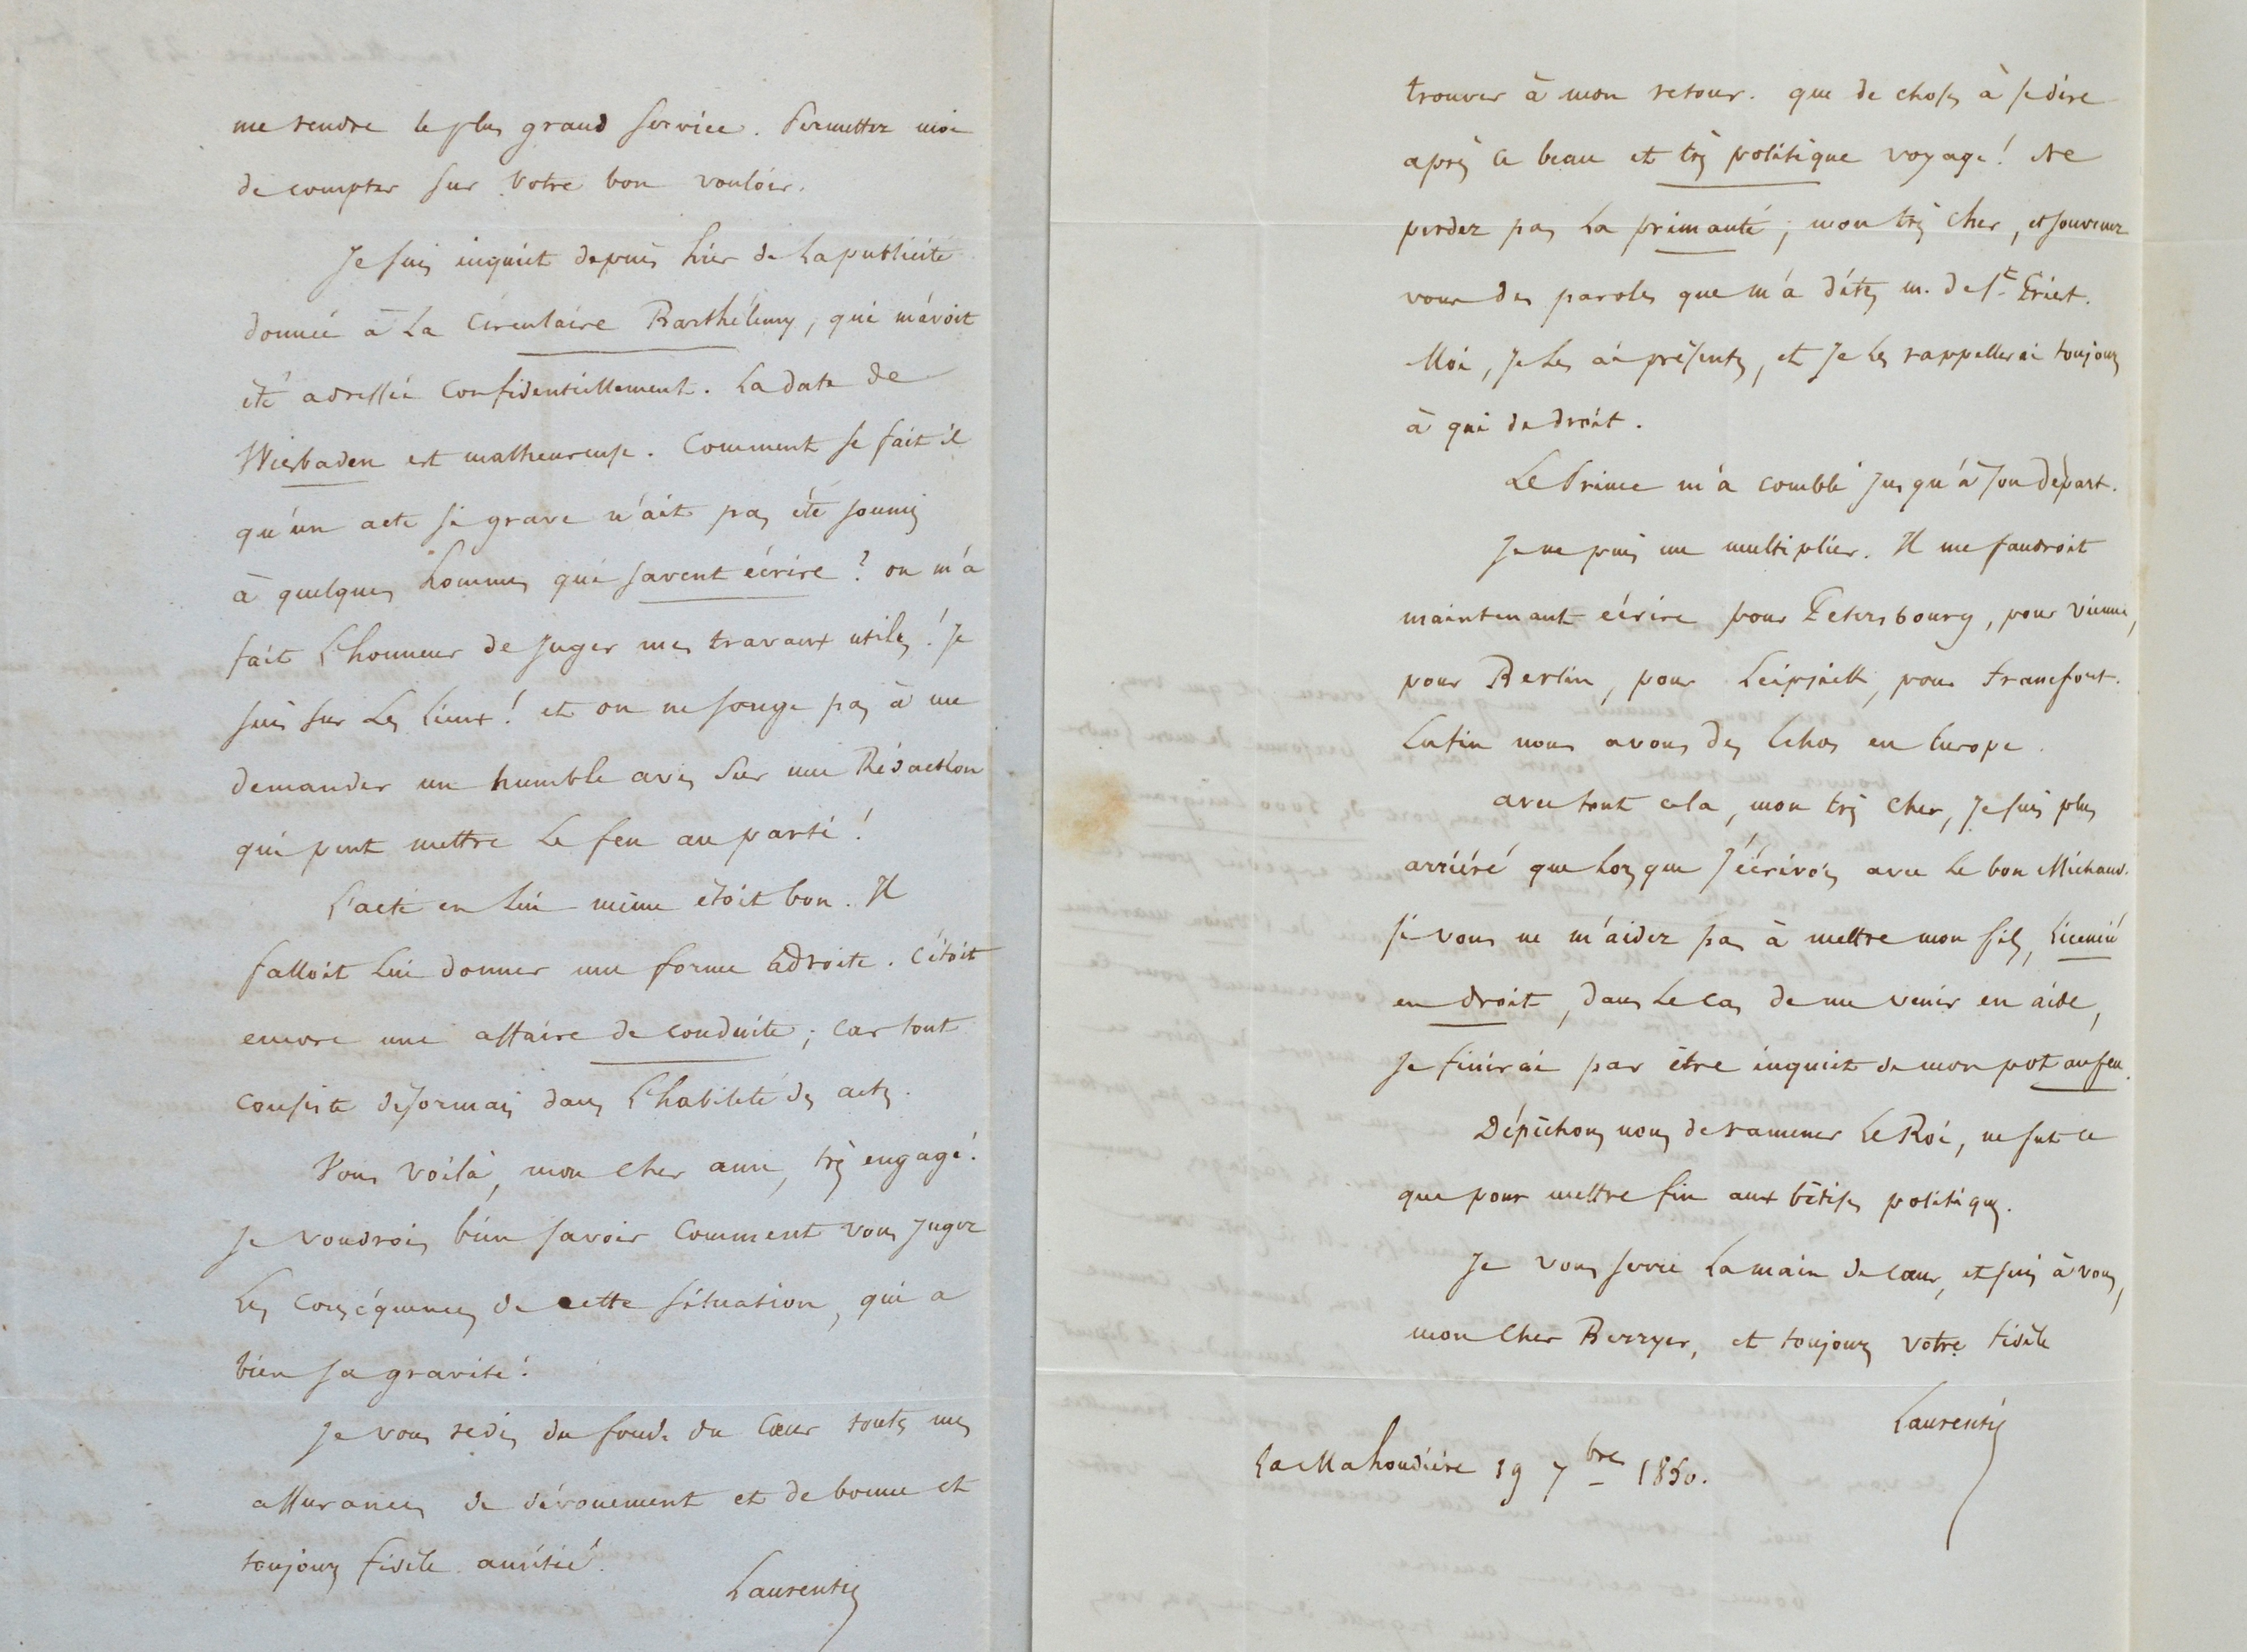 me rendre le plus grand service. Permettez moi
de compter sur votre bon vouloir.
Je suis inquiet depuis hier de la publicité
donnée à la Circulaire Barthélemy, qui m'avoit
été adressée confidentiellement. La date de
Wiesbaden est malheureuse. Comment se fait il
qu'un acte si grave n'ait pas été soumis
à quelques hommes qui savent écrire ? on m'a
fait l'honneur de juger mes travaux utiles ! Je
suis sur les lieux ! et on ne songe pas à me
demander un humble avis sur une Rédaction
qui peut mettre le feu au parti !
L'acte en lui même étoit bon. Il
falloit lui donner une forme adroite. C'étoit
encore une affaire de conduite ; car tout
consiste désormais dans l'habileté des actes.
Vous voilà, mon cher ami, très engagé.
Je voudrois bien savoir comment vous jugez
les conséquences de cette situation, qui a
bien sa gravité !
Je vous redis du fond du cœur toutes mes
assurances de dévouement et de bonne et
toujours fidèle amitié.
Laurentie
trouver à mon retour. que de choses à se dire
après ce beau et très politique voyage ! Ne
perdez pas la primauté, mon très cher, et souvenez
vous des paroles que m'a dites m. de St Priest.
Moi, je les ai présentes, et je les rappellerai toujours
à qui de droit.
Le Prince m'a comblé jusqu'à son départ.
Je ne puis me multiplier. Il me faudroit
maintenant écrire pour Petersbourg, pour Vienne,
pour Berlin, pour Leipsick, pour francfort.
Enfin nous avons des échos en Europe.
avec tout cela, mon très cher, je suis plus
arriéré que lorsque j'écrivois avec le bon Michaud.
si vous ne m'aidez pas à mettre mon fils, licencié
en droit, dans le cas de me venir en aide,
je finirai par être inquiet de mon pot au feu.
Dépêchons nous de ramener le Roi, ne fut ce
que pour mettre fin aux bêtises politiques.
Je vous serre la main de cœur, et suis à vous,
mon cher Berryer, et toujours votre fidèle
Laurentie
La Mahoudière 19 7bre 1850.